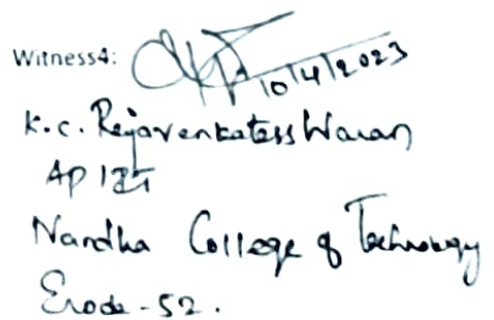 Witness4:
10/4/2023
K.C. Rajavenkatesswaran
AP / IT
Nandha College of Technology
Erode-52.